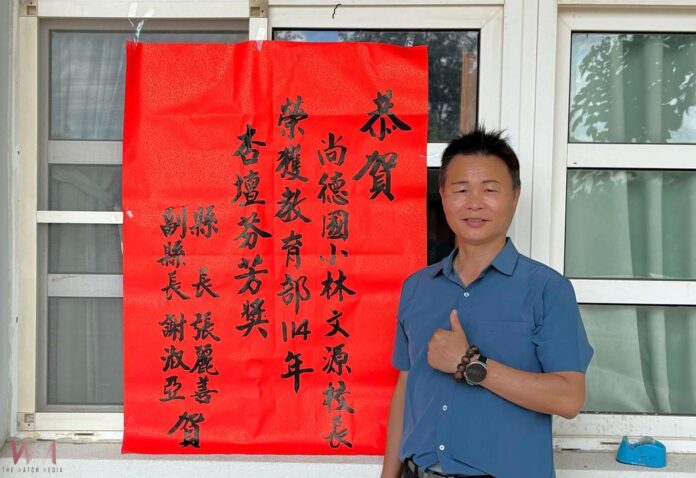 恭賀
尚德國小林文源校長
榮獲教育部114年
杏壇芬芳獎
縣長張麗善
副縣長謝淑亞 賀
THE WATCH MEDIA